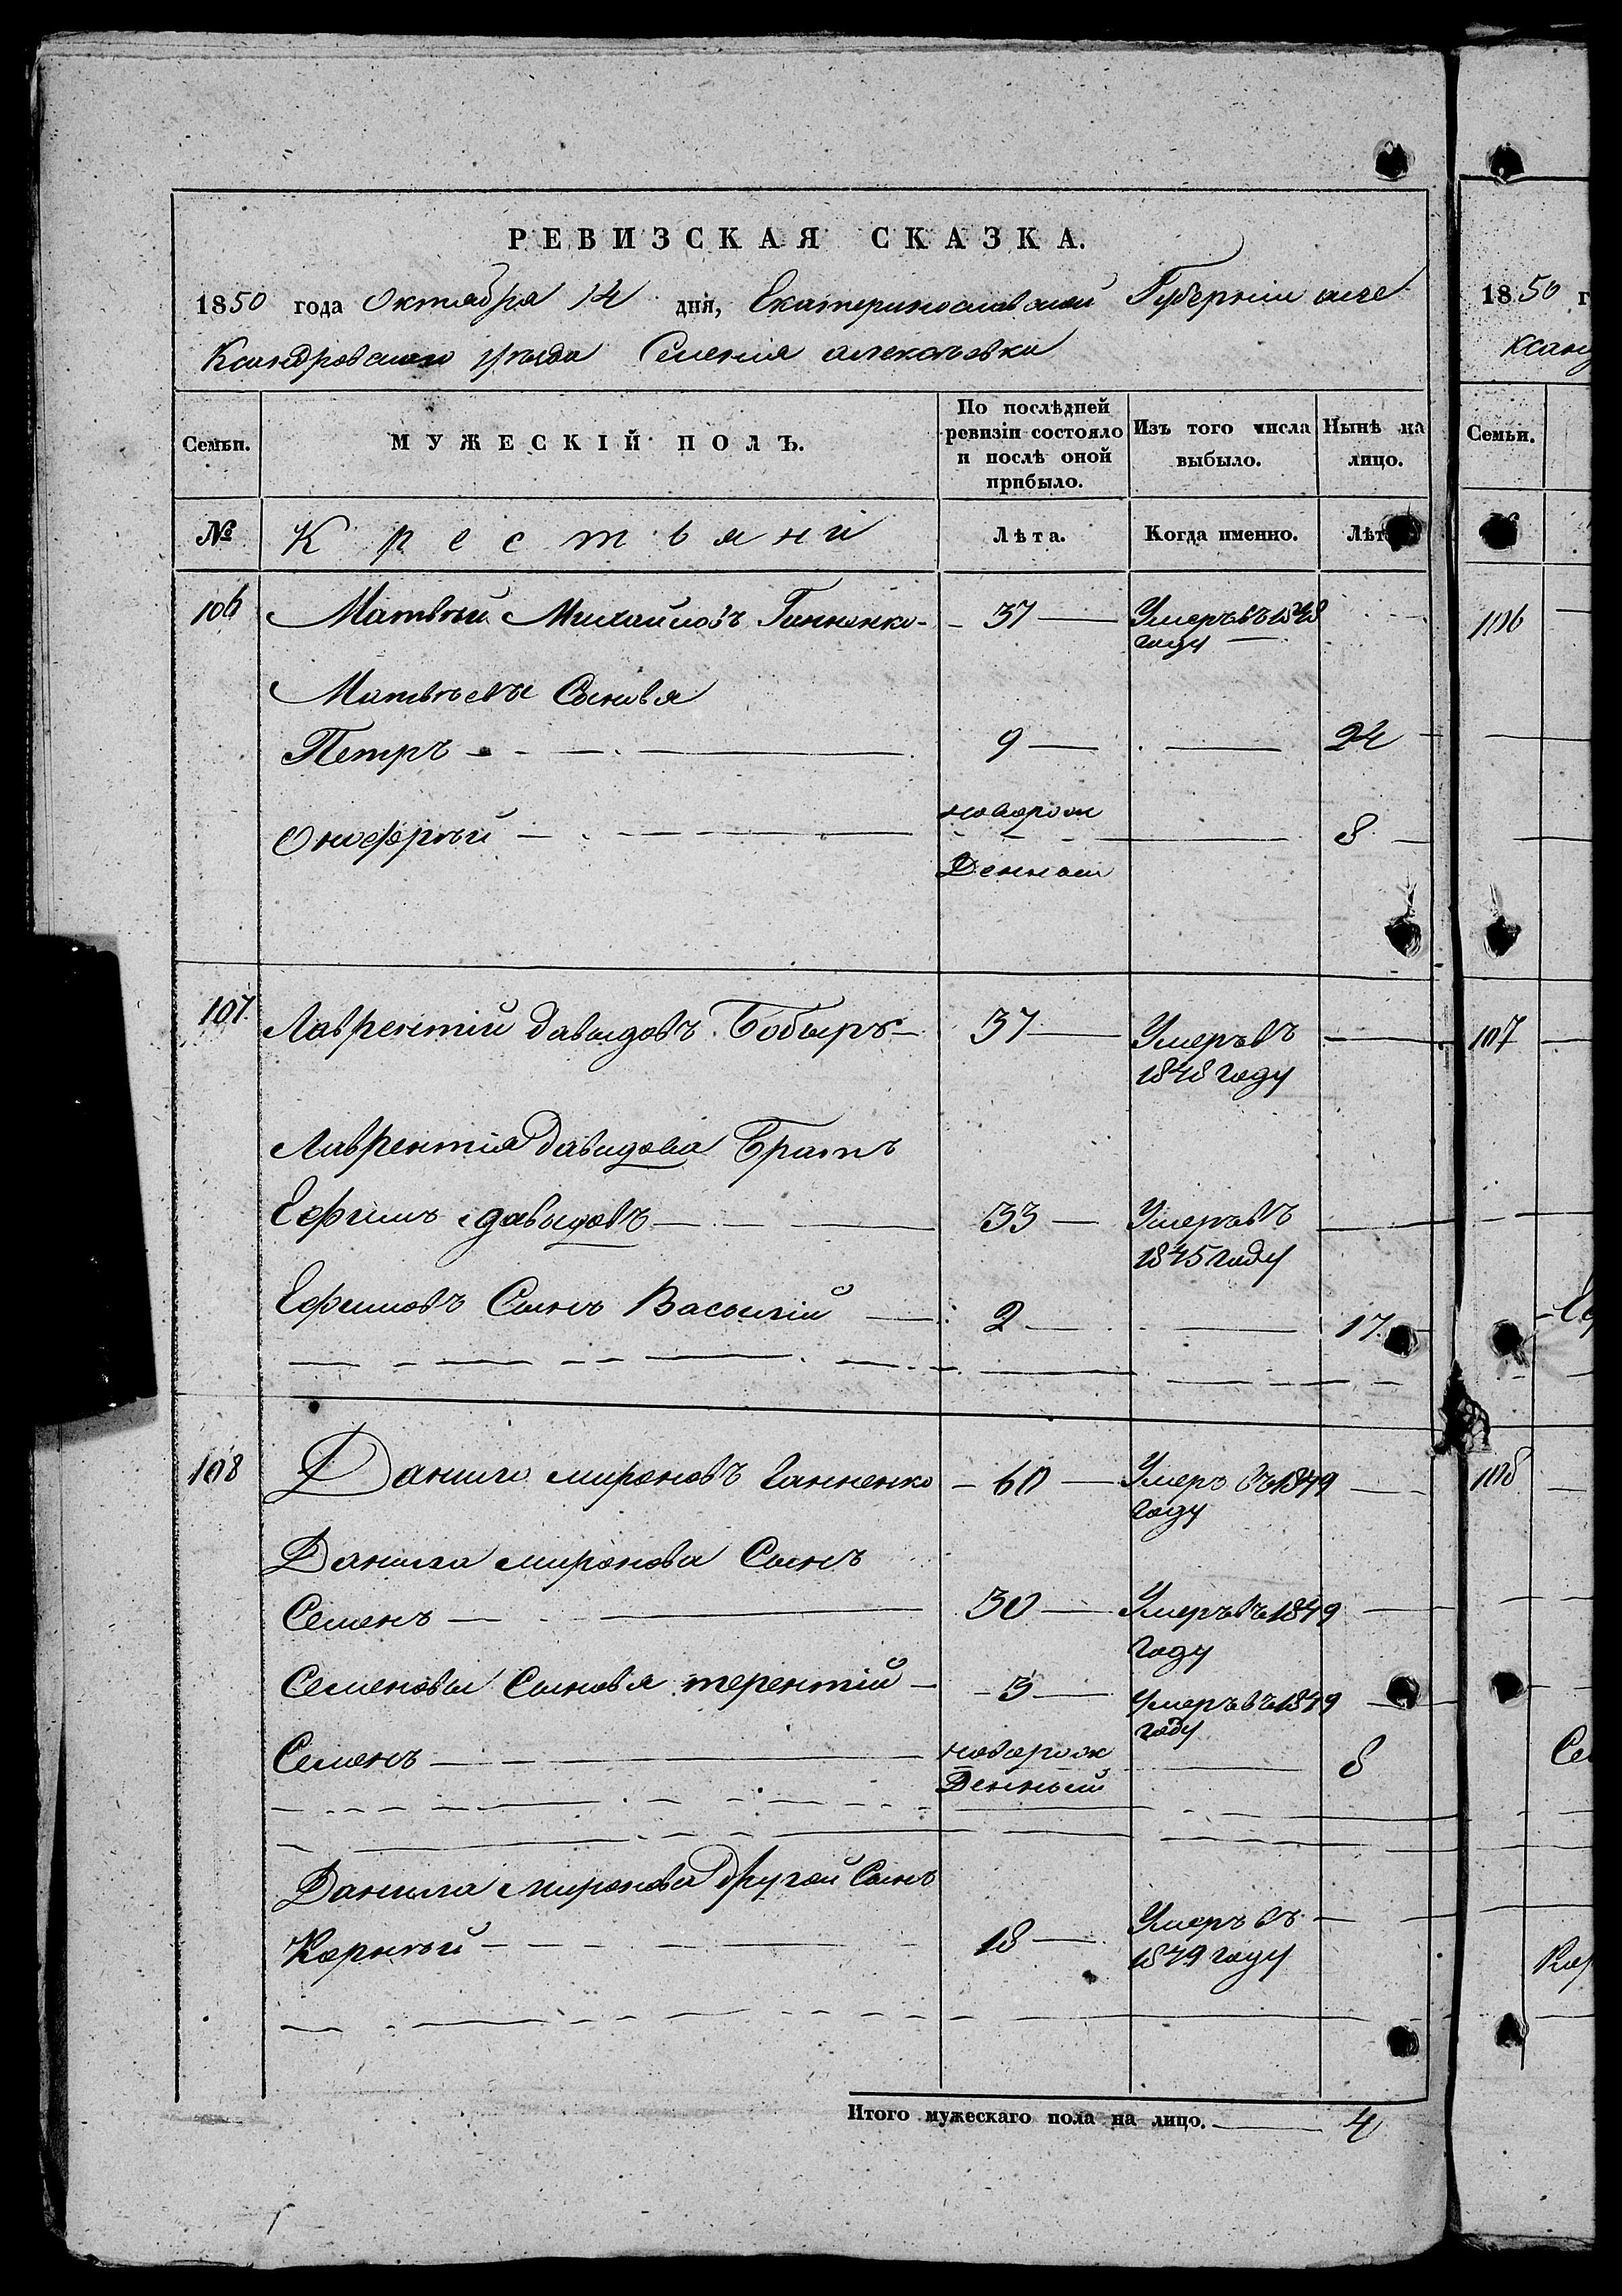 РЕВИЗСКАЯ СКАЗКА.
1850 года Октября 14 дня, Екатеринославской Губернiи але
Ксандровскаго уѣзда Селенiя алексѣевки
Семьи. МУЖЕСКIЙ ПОЛЪ. По послѣдней ревизiи состояло и послѣ оной прибыло. Изъ того числа выбыло. Нынѣ на лицо.
№ Крестьяни Лѣта. Когда именно. Лѣт
106 Матвѣй Михайловъ Ганненко 37 Умеръ въ 1848 году
Матвѣевы Сыновья
Петръ 9 24
Онофрѣй новорож денный 8
107 Лаврентiй давыдовъ Бобырь 37 Умеръ въ 1848 году
Лаврентiя давидова Братъ
Ефимъ давыдовъ 33 Умеръ въ 1845 году
Ефимовъ Сынъ Василiй 2 17
108 Данило мироновъ Ганненко 60 Умеръ въ 1849 году
Данила миронова Сынъ
Семенъ 30 Умеръ въ 1849 году
Семеновы Сыновья терентiй 3 Умеръ въ 1849 году
Семенъ новорож денный 8
Данила миронова другой Сынъ
Корнѣй 18 Умеръ въ 1849 году
Итого мужескаго пола на лицо. 4
1850 г
ксанд
Семьи.
106
107
108
Сем